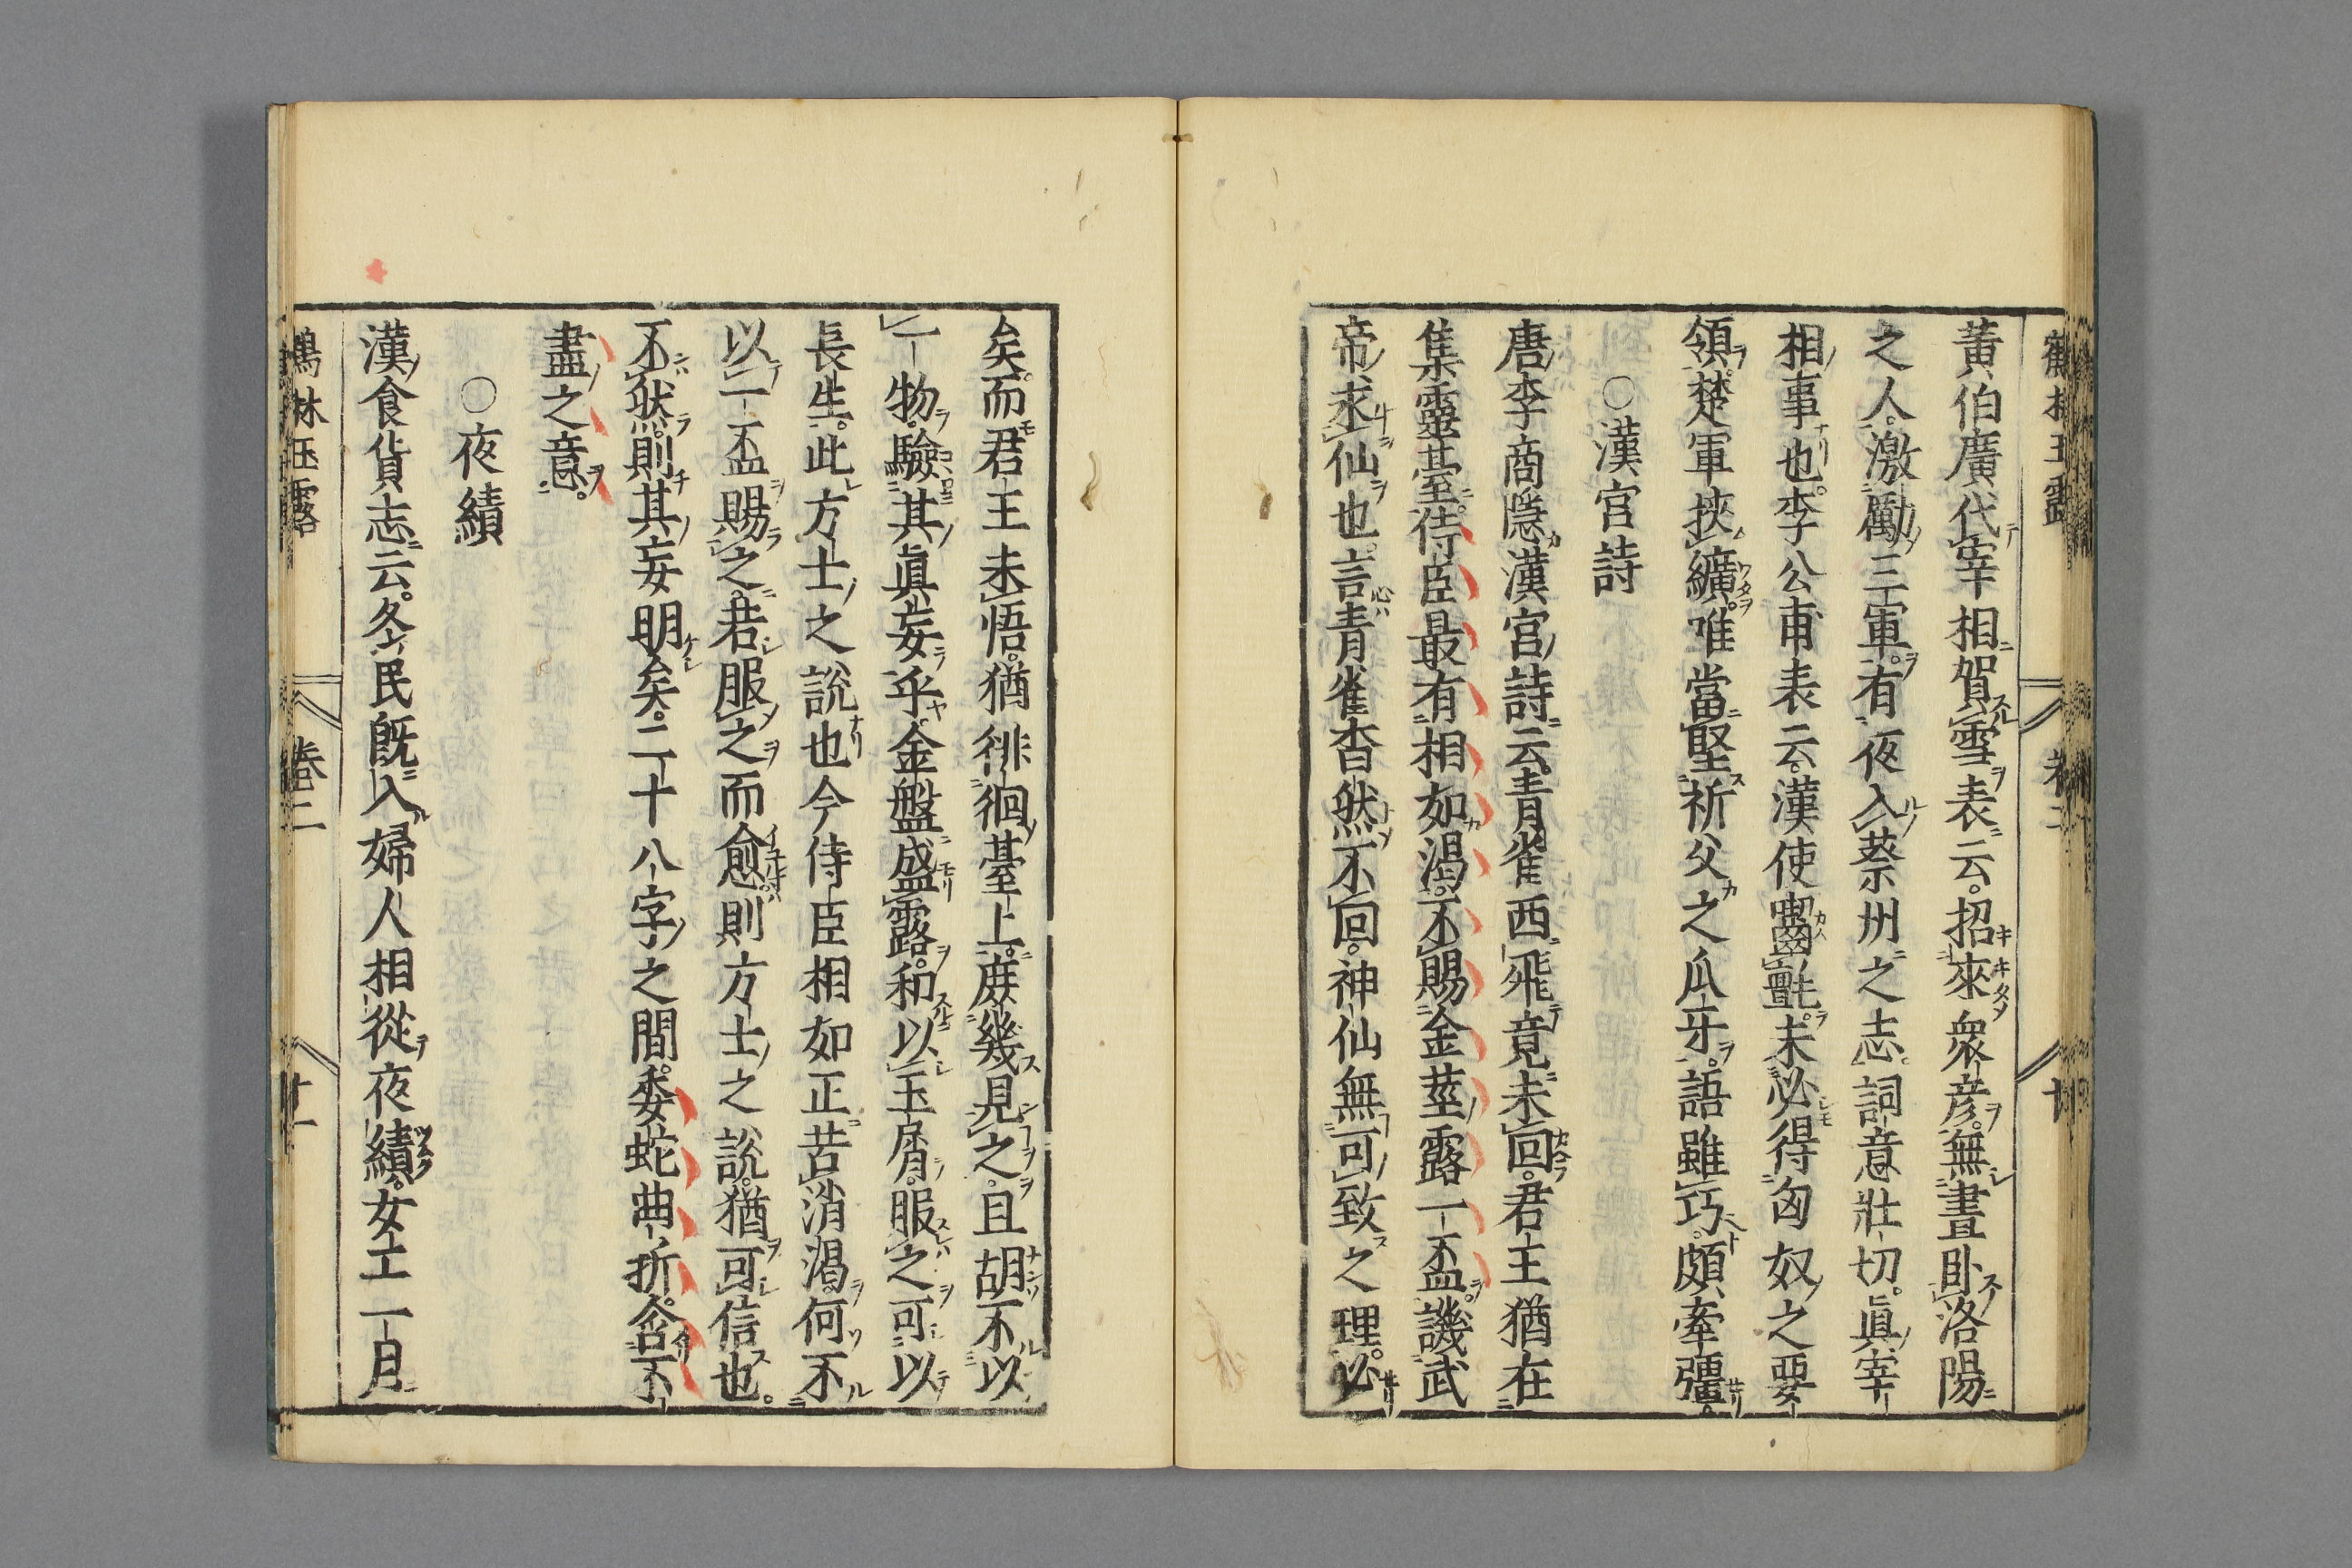 黃伯廣代宰相賀雪表云。招來衆彦。無晝臥洛陽
之人。激勵三軍。有夜入蔡州之志。詞意壯切。眞宰
相事也。李公甫表云。漢使齧氈。未必得匈奴之要
領。楚軍挾纊。唯當堅祈父之瓜牙。語雖巧。頗牽彊。
○漢宮詩
唐李商隱漢宮詩云。青雀西飛竟未回。君王猶在
集靈臺。侍臣最有相如渴。不賜金莖露一盃。譏武
帝求仙也。言青雀杳然不回。神仙無可致之理。必
矣。而君王未悟。猶徘徊臺上。庶幾見之。且胡不以
一物驗其眞妄乎。金盤盛露。和以玉屑。服之可以
長生。此方士之說也今侍臣相如正苦消渴。何不
以一盃賜之。若服之而愈。則方士之說。猶可信也。
不然。則其妄明矣。二十八字之間。委蛇曲折。含不
盡之意。
○夜績
漢食貨志云。冬民既入。婦人相從夜績。女工一月
鶴林玉露
卷二
廿一